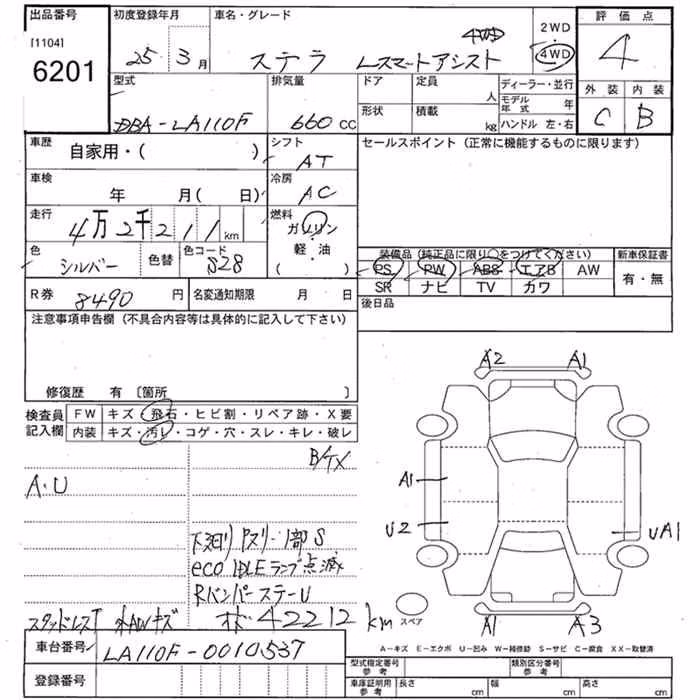 出品番号
[1104]
6201
初度登録年月
25年 3月
車名・グレード
ステラ Lスマートアシスト 4WD
2WD
4WD
評価点
4
外装 内装
C B
型式
DBA-LA110F
排気量
660 cc
ドア
形状
定員 人
積載 kg
ディーラー・並行
モデル年式 年
ハンドル 左・右
車歴 自家用・( )
シフト AT
車検 年 月( 日)
冷房 AC
走行 4万2千211km
燃料 ガソリン・軽油 ( )
色 シルバー 色替 色コード S28
セールスポイント(正常に機能するものに限ります)
装備品(純正品に限り○をつけてください)
新車保証書
PS PW ABS エアB AW
SR ナビ TV カワ
有・無
R券 8490円
名変通知期限 月 日
後日品
注意事項申告欄(不具合内容等は具体的に記入して下さい)
修復歴 有 [箇所 ]
検査員記入欄
FW キズ・飛石・ヒビ割・リペア跡・X要
内装 キズ・汚レ・コゲ・穴・スレ・キレ・破レ
A・U
下廻り Pスリ・1部S
eco IDLEランプ点滅
RバンパーステーU
スタッドレス
42212km
車台番号 LA110F-0010537
登録番号
A2 A1
A1
U2
UA1
A1 A3
スペア
A－キズ E－エクボ U－凹み W－補修跡 S－サビ C－腐食 XX－取替済
型式指定番号 参考
類別区分番号 参考
車庫証明用 参考
長さ cm 幅 cm 高さ cm